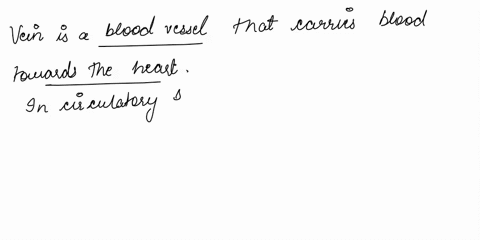 Vein is a blood vessel that carries blood
towards the heart.
In circulatory s